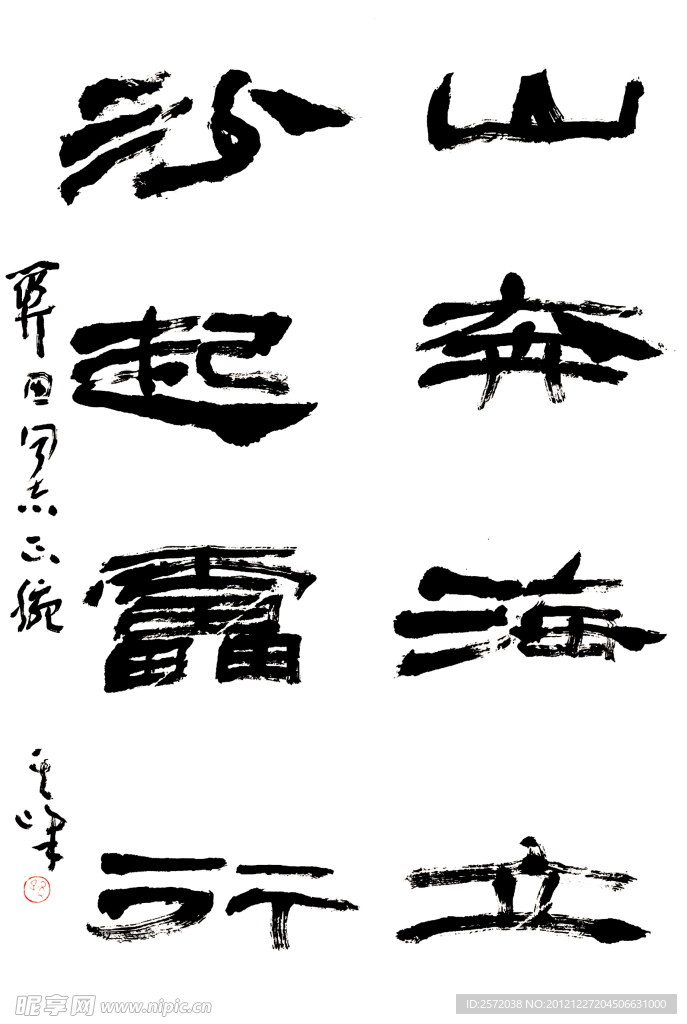 山奔海立
沙起靁行
同志正腕
其峰
昵享网 www.nipic.cn
ID:2572038 NO:20121227204506631000